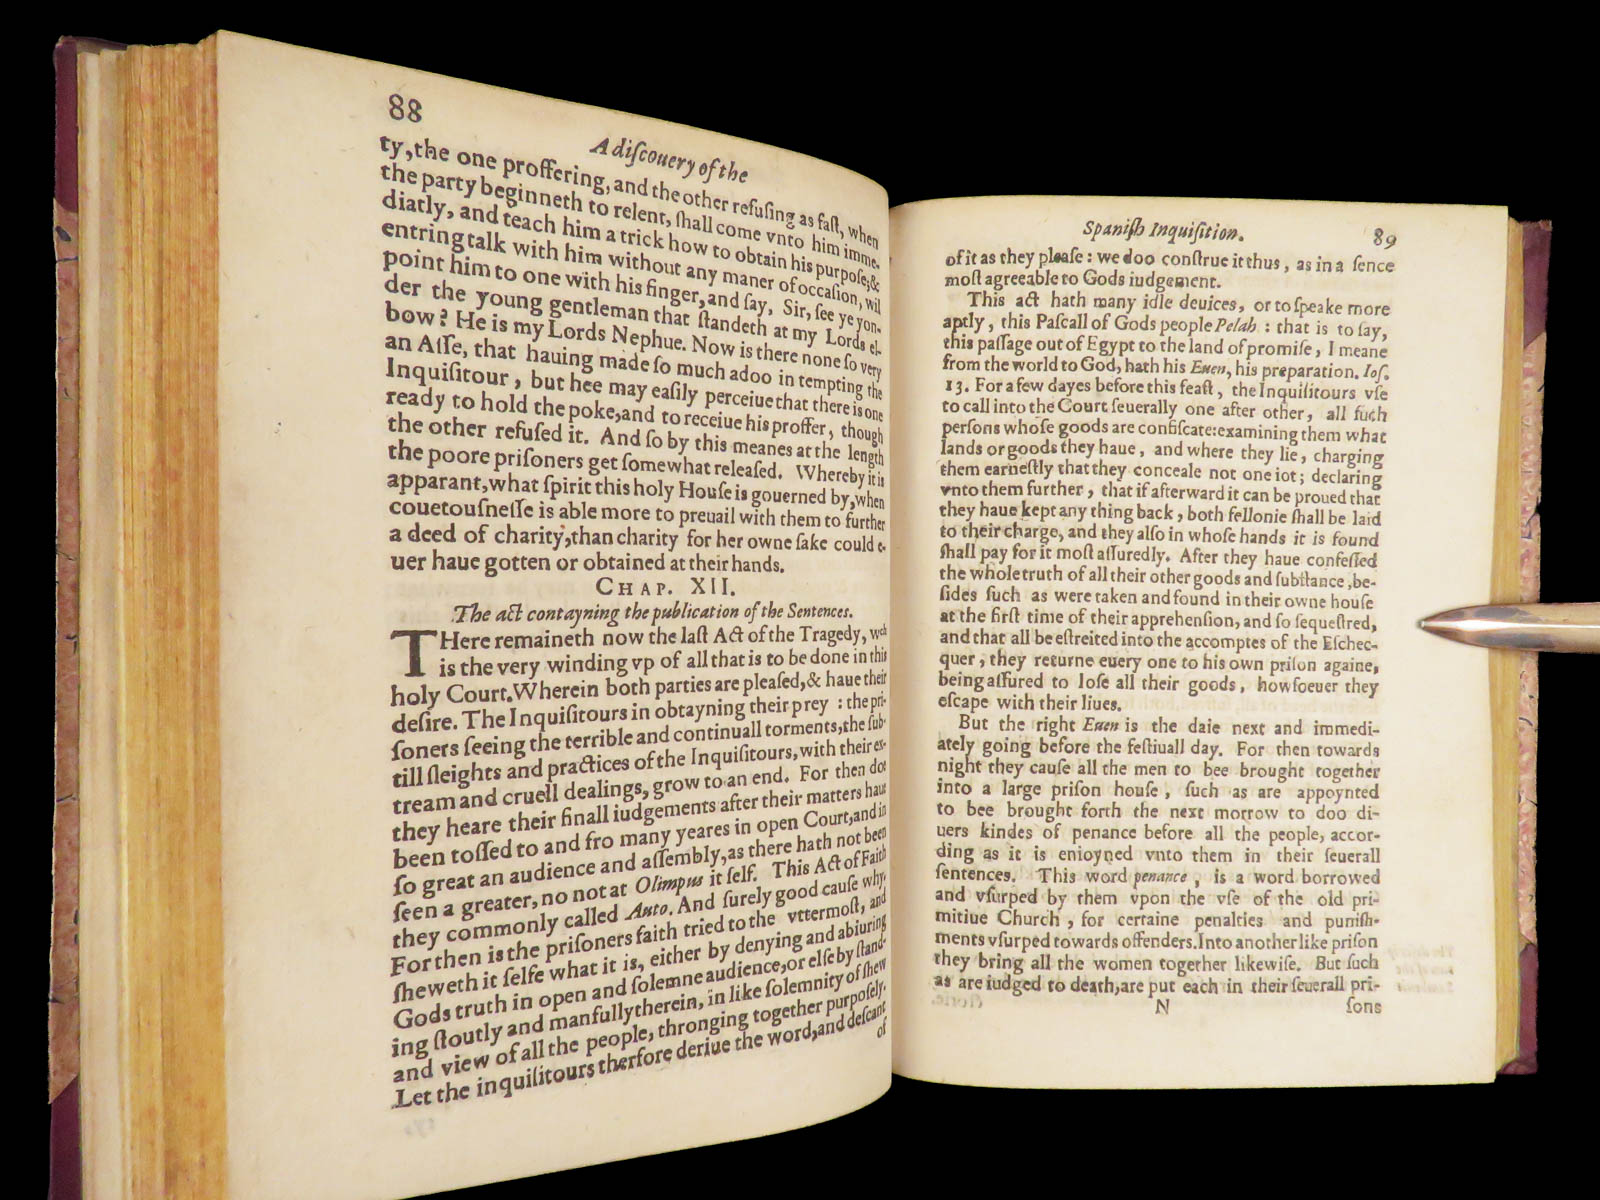 88
A diſcouery of the
ty, the one proffering, and the other refuſing as faſt, when
the party beginneth to relent, ſhall come vnto him imme-
diatly, and teach him a trick how to obtain his purpoſe; &
entring talk with him without any maner of occaſion, wil
point him to one with his finger, and ſay, Sir, ſee ye yon-
der the young gentleman that ſtandeth at my Lords el-
bow? He is my Lords Nephue. Now is there none ſo very
an Aſſe, that hauing made ſo much adoo in tempting the
Inquiſitour, but hee may eaſily perceiue that there is one
ready to hold the poke, and to receiue his proffer, though
the other refuſed it. And ſo by this meanes at the length
the poore priſoners get ſomewhat releaſed. Whereby it is
apparant, what ſpirit this holy Houſe is gouerned by, when
couetouſneſſe is able more to preuail with them to further
a deed of charity, than charity for her owne ſake could e-
uer haue gotten or obtained at their hands.
CHAP. XII.
The act contayning the publication of the Sentences.
THere remaineth now the laſt Act of the Tragedy, wch
is the very winding vp of all that is to be done in this
holy Court. Wherein both parties are pleaſed, & haue their
deſire. The Inquiſitours in obtayning their prey : the pri-
ſoners ſeeing the terrible and continuall torments, the ſub-
till ſleights and practices of the Inquiſitours, with their ex-
tream and cruell dealings, grow to an end. For then doe
they heare their finall iudgements after their matters haue
been toſſed to and fro many yeares in open Court, and in
ſo great an audience and aſſembly, as there hath not been
ſeen a greater, no not at Olimpus it ſelf. This Act of Faith
they commonly called Auto. And ſurely good cauſe why.
For then is the priſoners faith tried to the vttermoſt, and
ſheweth it ſelfe what it is, either by denying and abiuring
Gods truth in open and ſolemne audience, or elſe by ſtand-
ing ſtoutly and manfully therein, in like ſolemnity of ſhew
and view of all the people, thronging together purpoſely.
Let the inquiſitours therfore deriue the word, and deſcant
of
Spaniſh Inquiſition.
89
of it as they pleaſe : we doo conſtrue it thus, as in a ſence
moſt agreeable to Gods iudgement.
This act hath many idle deuices, or to ſpeake more
aptly, this Paſcall of Gods people Peſah : that is to ſay,
this paſſage out of Egypt to the land of promiſe, I meane
from the world to God, hath his Euen, his preparation. Ioſ.
13. For a few dayes before this feaſt, the Inquiſitours vſe
to call into the Court ſeuerally one after other, all ſuch
perſons whoſe goods are confiſcate: examining them what
lands or goods they haue, and where they lie, charging
them earneſtly that they conceale not one iot; declaring
vnto them further, that if afterward it can be proued that
they haue kept any thing back, both fellonie ſhall be laid
to their charge, and they alſo in whoſe hands it is found
ſhall pay for it moſt aſſuredly. After they haue confeſſed
the whole truth of all their other goods and ſubſtance, be-
ſides ſuch as were taken and found in their owne houſe
at the firſt time of their apprehenſion, and ſo ſequeſtred,
and that all be eſtreited into the accomptes of the Eſchec-
quer, they returne euery one to his own priſon againe,
being aſſured to loſe all their goods, howſoeuer they
eſcape with their liues.
But the right Euen is the daie next and immedi-
ately going before the feſtiuall day. For then towards
night they cauſe all the men to bee brought together
into a large priſon houſe, ſuch as are appoynted
to bee brought forth the next morrow to doo di-
uers kindes of penance before all the people, accor-
ding as it is enioyned vnto them in their ſeuerall
ſentences. This word penance, is a word borrowed
and vſurped by them vpon the vſe of the old pri-
mitiue Church, for certaine penalties and puniſh-
ments vſurped towards offenders. Into another like priſon
they bring all the women together likewiſe. But ſuch
as are iudged to death, are put each in their ſeuerall pri-
N ſons